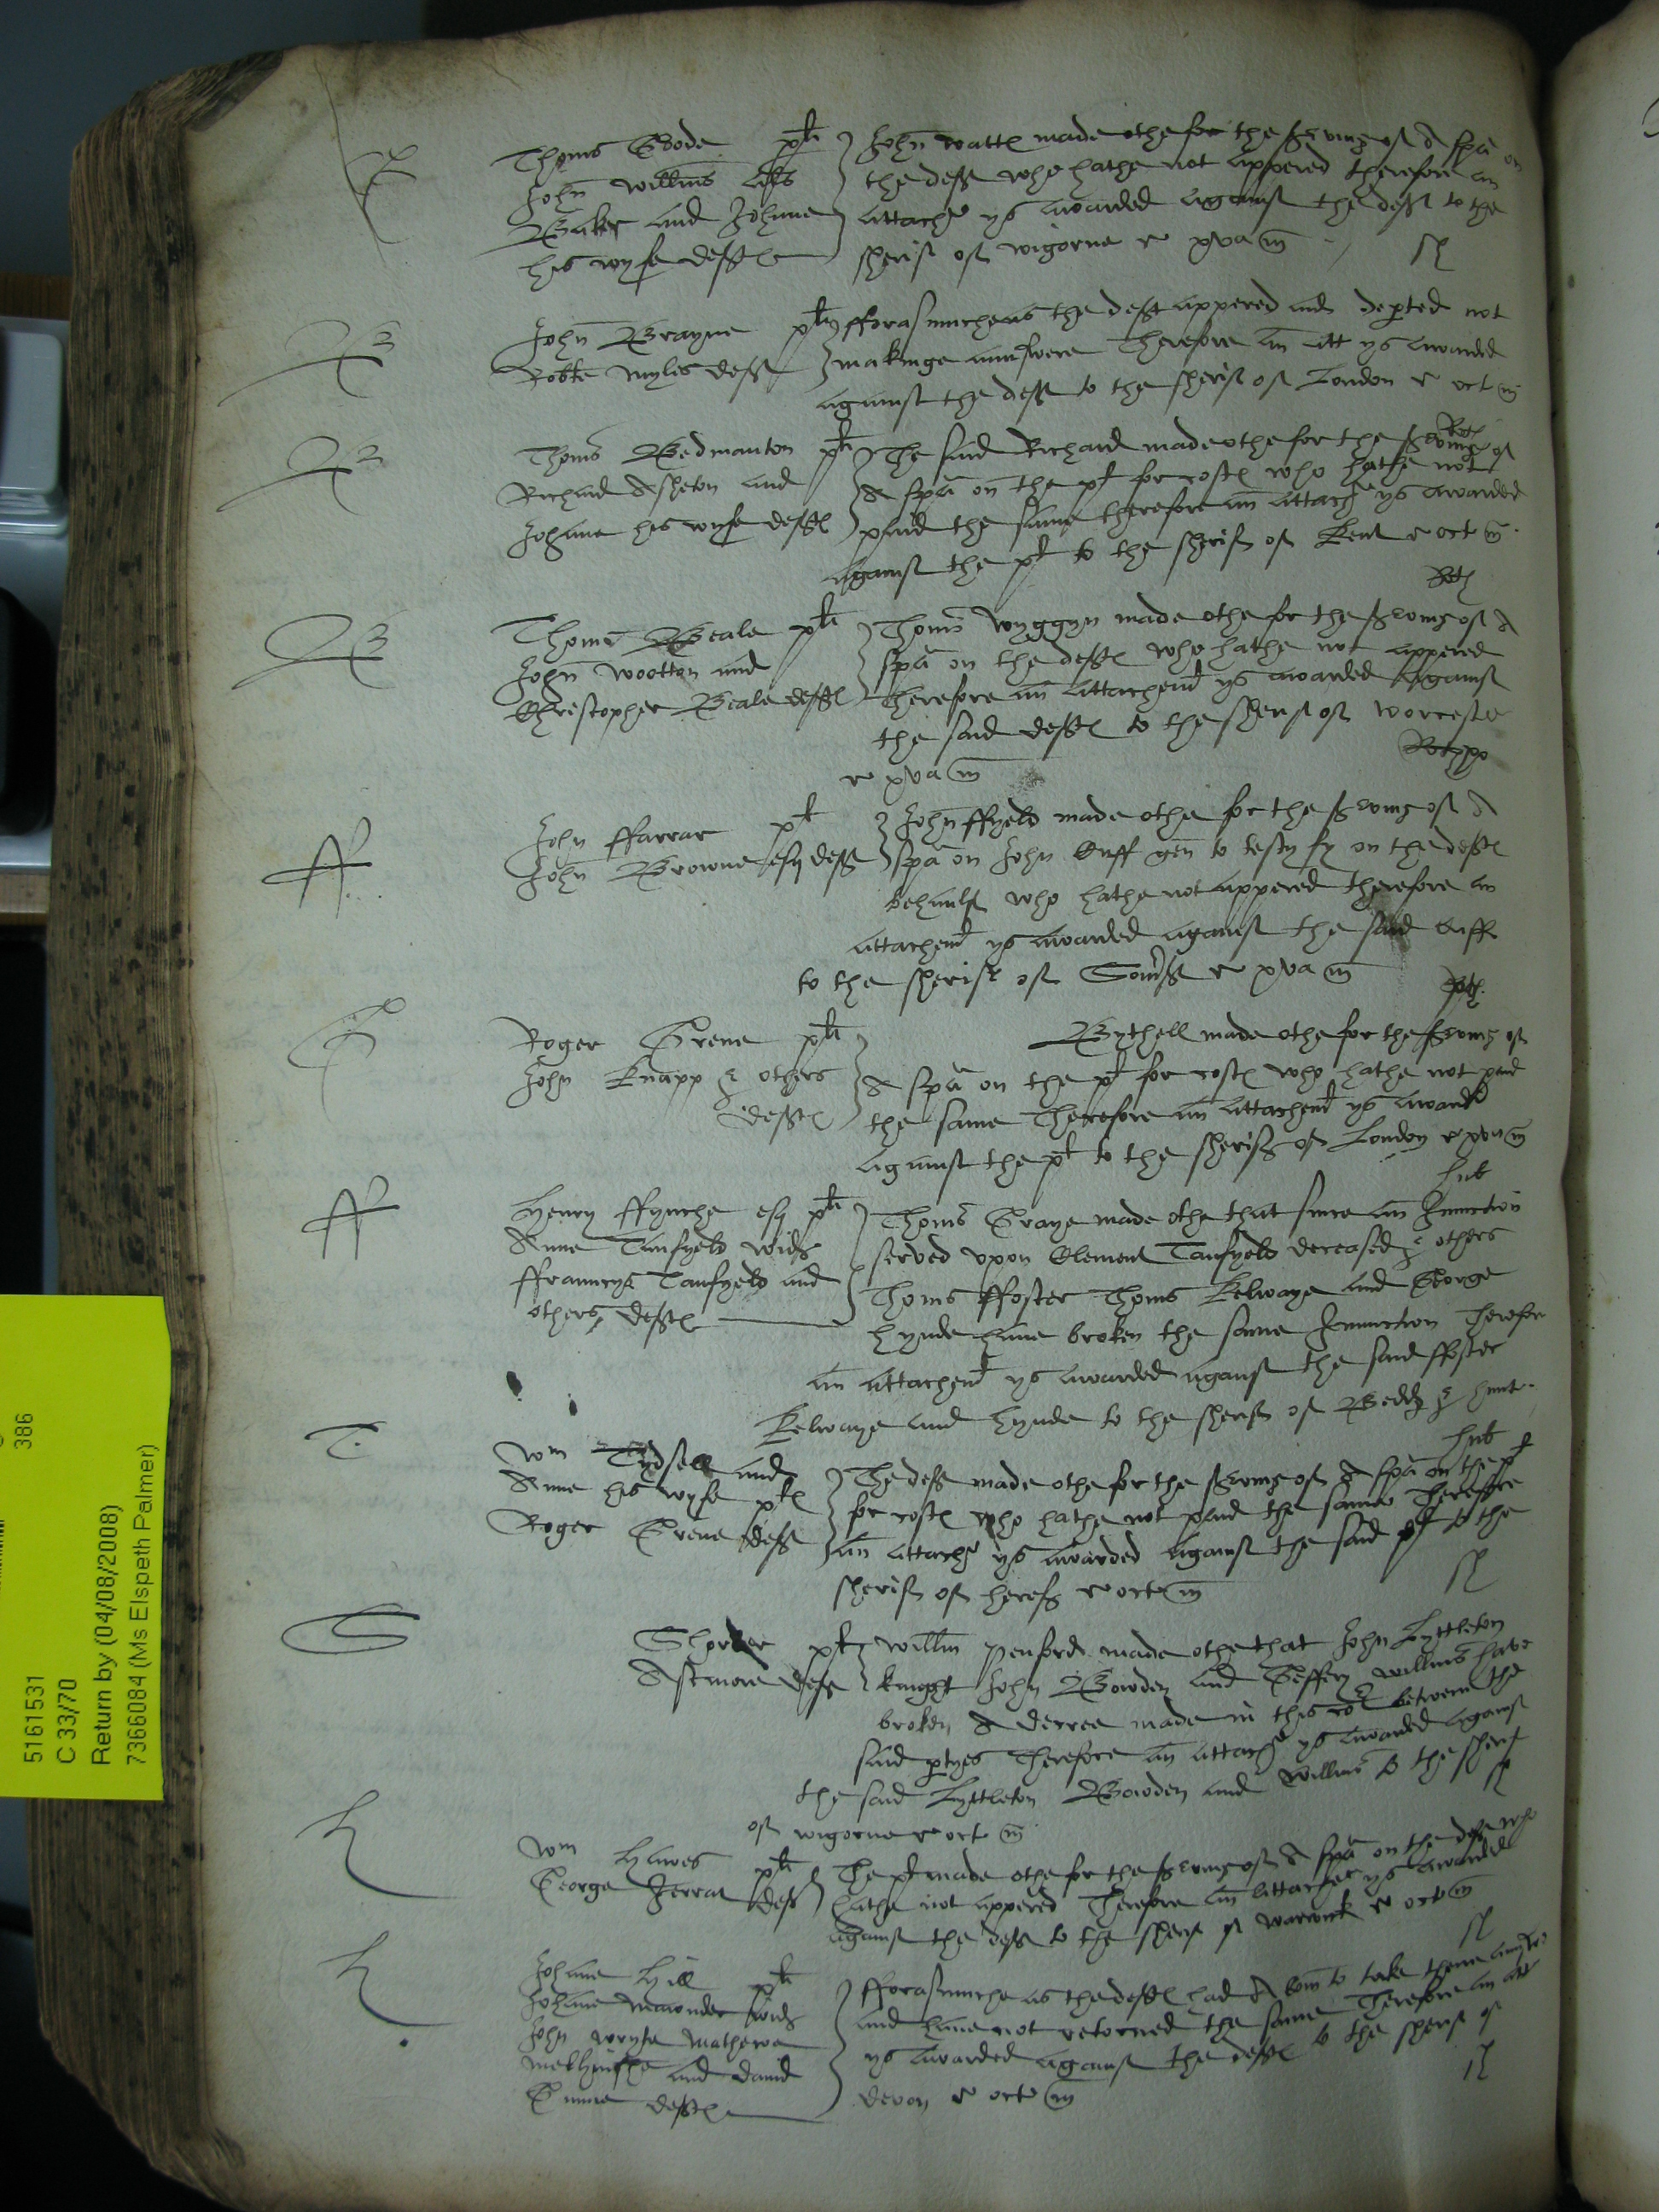 G
Thoms Goode plt
John Willms als
Baker and Johane
his wyfe deftes
John Watts made othe for the serving of A spa on
the deft who hathe not appered therefore an
attach ys awarded against the deft to the
sherif of wigorne r xva m
B
John Brayne plt
Robte Myles deft
fforasmucheas the deft appered and depted not
makinge aunswere Therefore an att ys awarded
against the deft to the sherif of London r oct m
B
Thoms Bedmanton plt
Richard Asheton and
Johane his wyfe deftes
The said Richard made othe for the serving of
A spa on the plt for costes who hathe not
paid the same therefore an attach ys awarded
against the plt to the sherif of Kent r oct m
B
Thoms Beale plt
John Wootton and
Christopher Beale deftes
Thoms Wyggyn made othe for the serving of A
spa on the deftes who hathe not appered
Therefore an attachemt ys awarded against
the said deftes to the sherif of Worcester
r xva m
ff
John ffarrar plt
John Browne esq deft
John ffyeld made othe for the serving of A
spa on John Cuff gen to testyfy on the deftes
behaulf who hathe not appered therefore an
attachemt ys awarded against the said Cuff
to the sherif of Somst r xva m
G
Roger Grene plt
John Knapp & others
deftes
Bythell made othe for the serving of
A spa on the plt for costes who hathe not paid
the same Therefore an attachemt ys awarded
against the plt to the sherif of London r xva m
ff
Henry ffynche esq plt
Anne Tanfyeld wid
ffrauncys Tanfyeld and
others deftes
Thoms Graye made othe that since an Iniunction
served upon Clement Tanfyeld deceased & others
Thoms ffoster Thoms Kelwaye and George
Hynde haue broken the same Iniunction Therefore
an attachemt ys awarded against the said ffoster
Kelwaye and Hynde to the sherif of Bedd & hunt
T
Wm Tydsell and
Anne his wyfe ples
Roger Grene deft
The deft made othe for the serving of A spa on the plt
for costes who hathe not paid the same Therefore
an attach ys awarded against the said plt to the
sherif of heref r oct m
S
Shorter plt
Astmore deft
Willm Penford made othe that John Lyttleton
knight John Bowden and Geffery Willms have
broken A decree made in this co betwene the
said ptyes Therefore an attach ys awarded against
the said Lyttleton Bowden and Willms to the sherif
of wigorne r oct m
H
Wm Hawes plt
George Jerrat deft
The plt made othe for the serving of A spa on the deft who
hathe not appered Therefore an attache ys awarded
against the deft to the sherif of Warwick r oct m
H
Johane Hill plt
Johane Maunder wid
John Mathewe
and David
deftes
fforasmuche as the deftes had A com to take theire answere
and haue not retorned the same Therefore an att
ys awarded against the deftes to the sherif of
Devon r oct m
386
5161531
C 33/70
Return by (04/08/2008)
7366084 (Ms Elspeth Palmer)